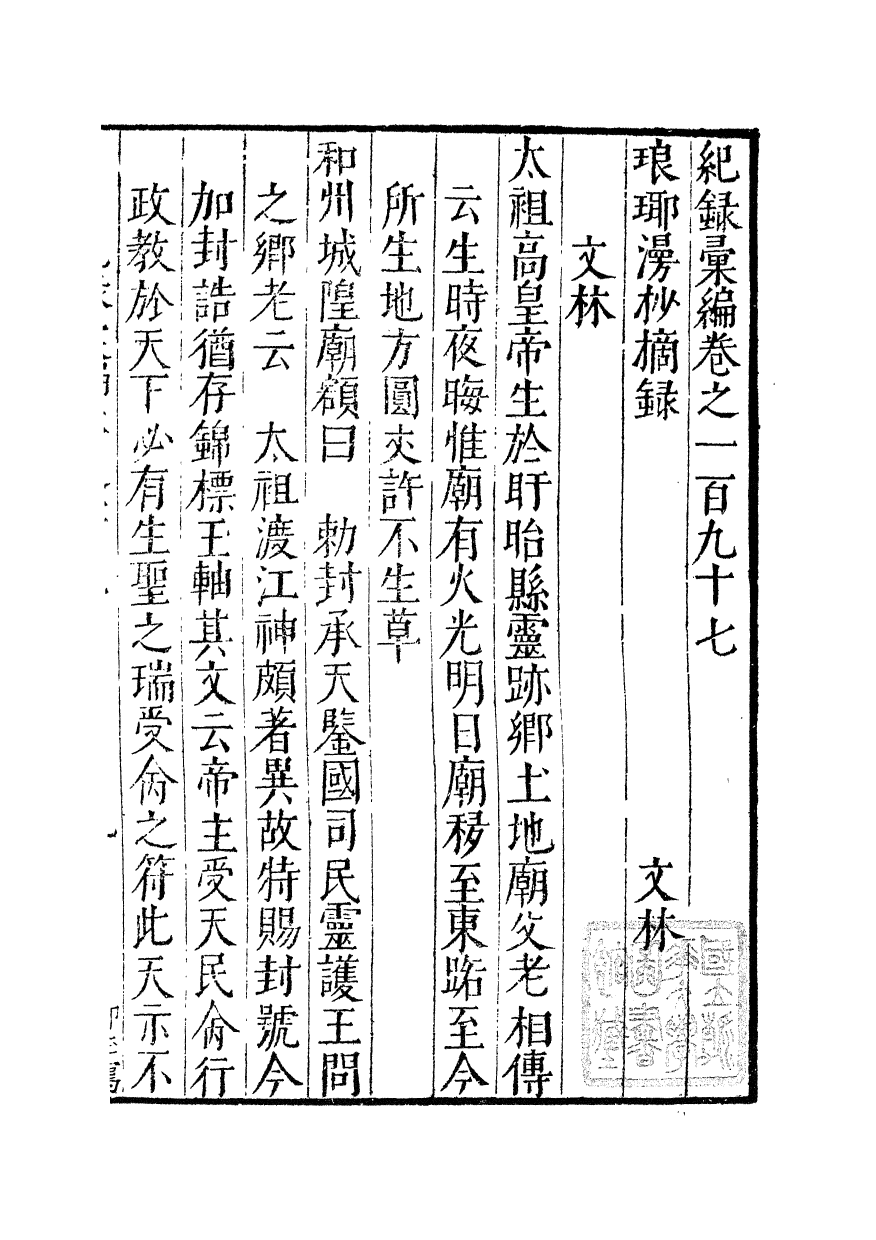 紀録彙編卷之一百九十七
琅琊漫抄摘録　文林
文林
太祖高皇帝生於盱眙縣靈跡郷土地廟父老相傳
云生時夜晦惟廟有火光明日廟移至東路至今
所生地方圓丈許不生草
和州城隍廟額曰　勅封承天鑒國司民靈護王問
之郷老云　太祖渡江神頗著異故特賜封號今
加封誥猶存錦標玉軸其文云帝主受天民命行
政教於天下必有生聖之瑞受命之符此天示不